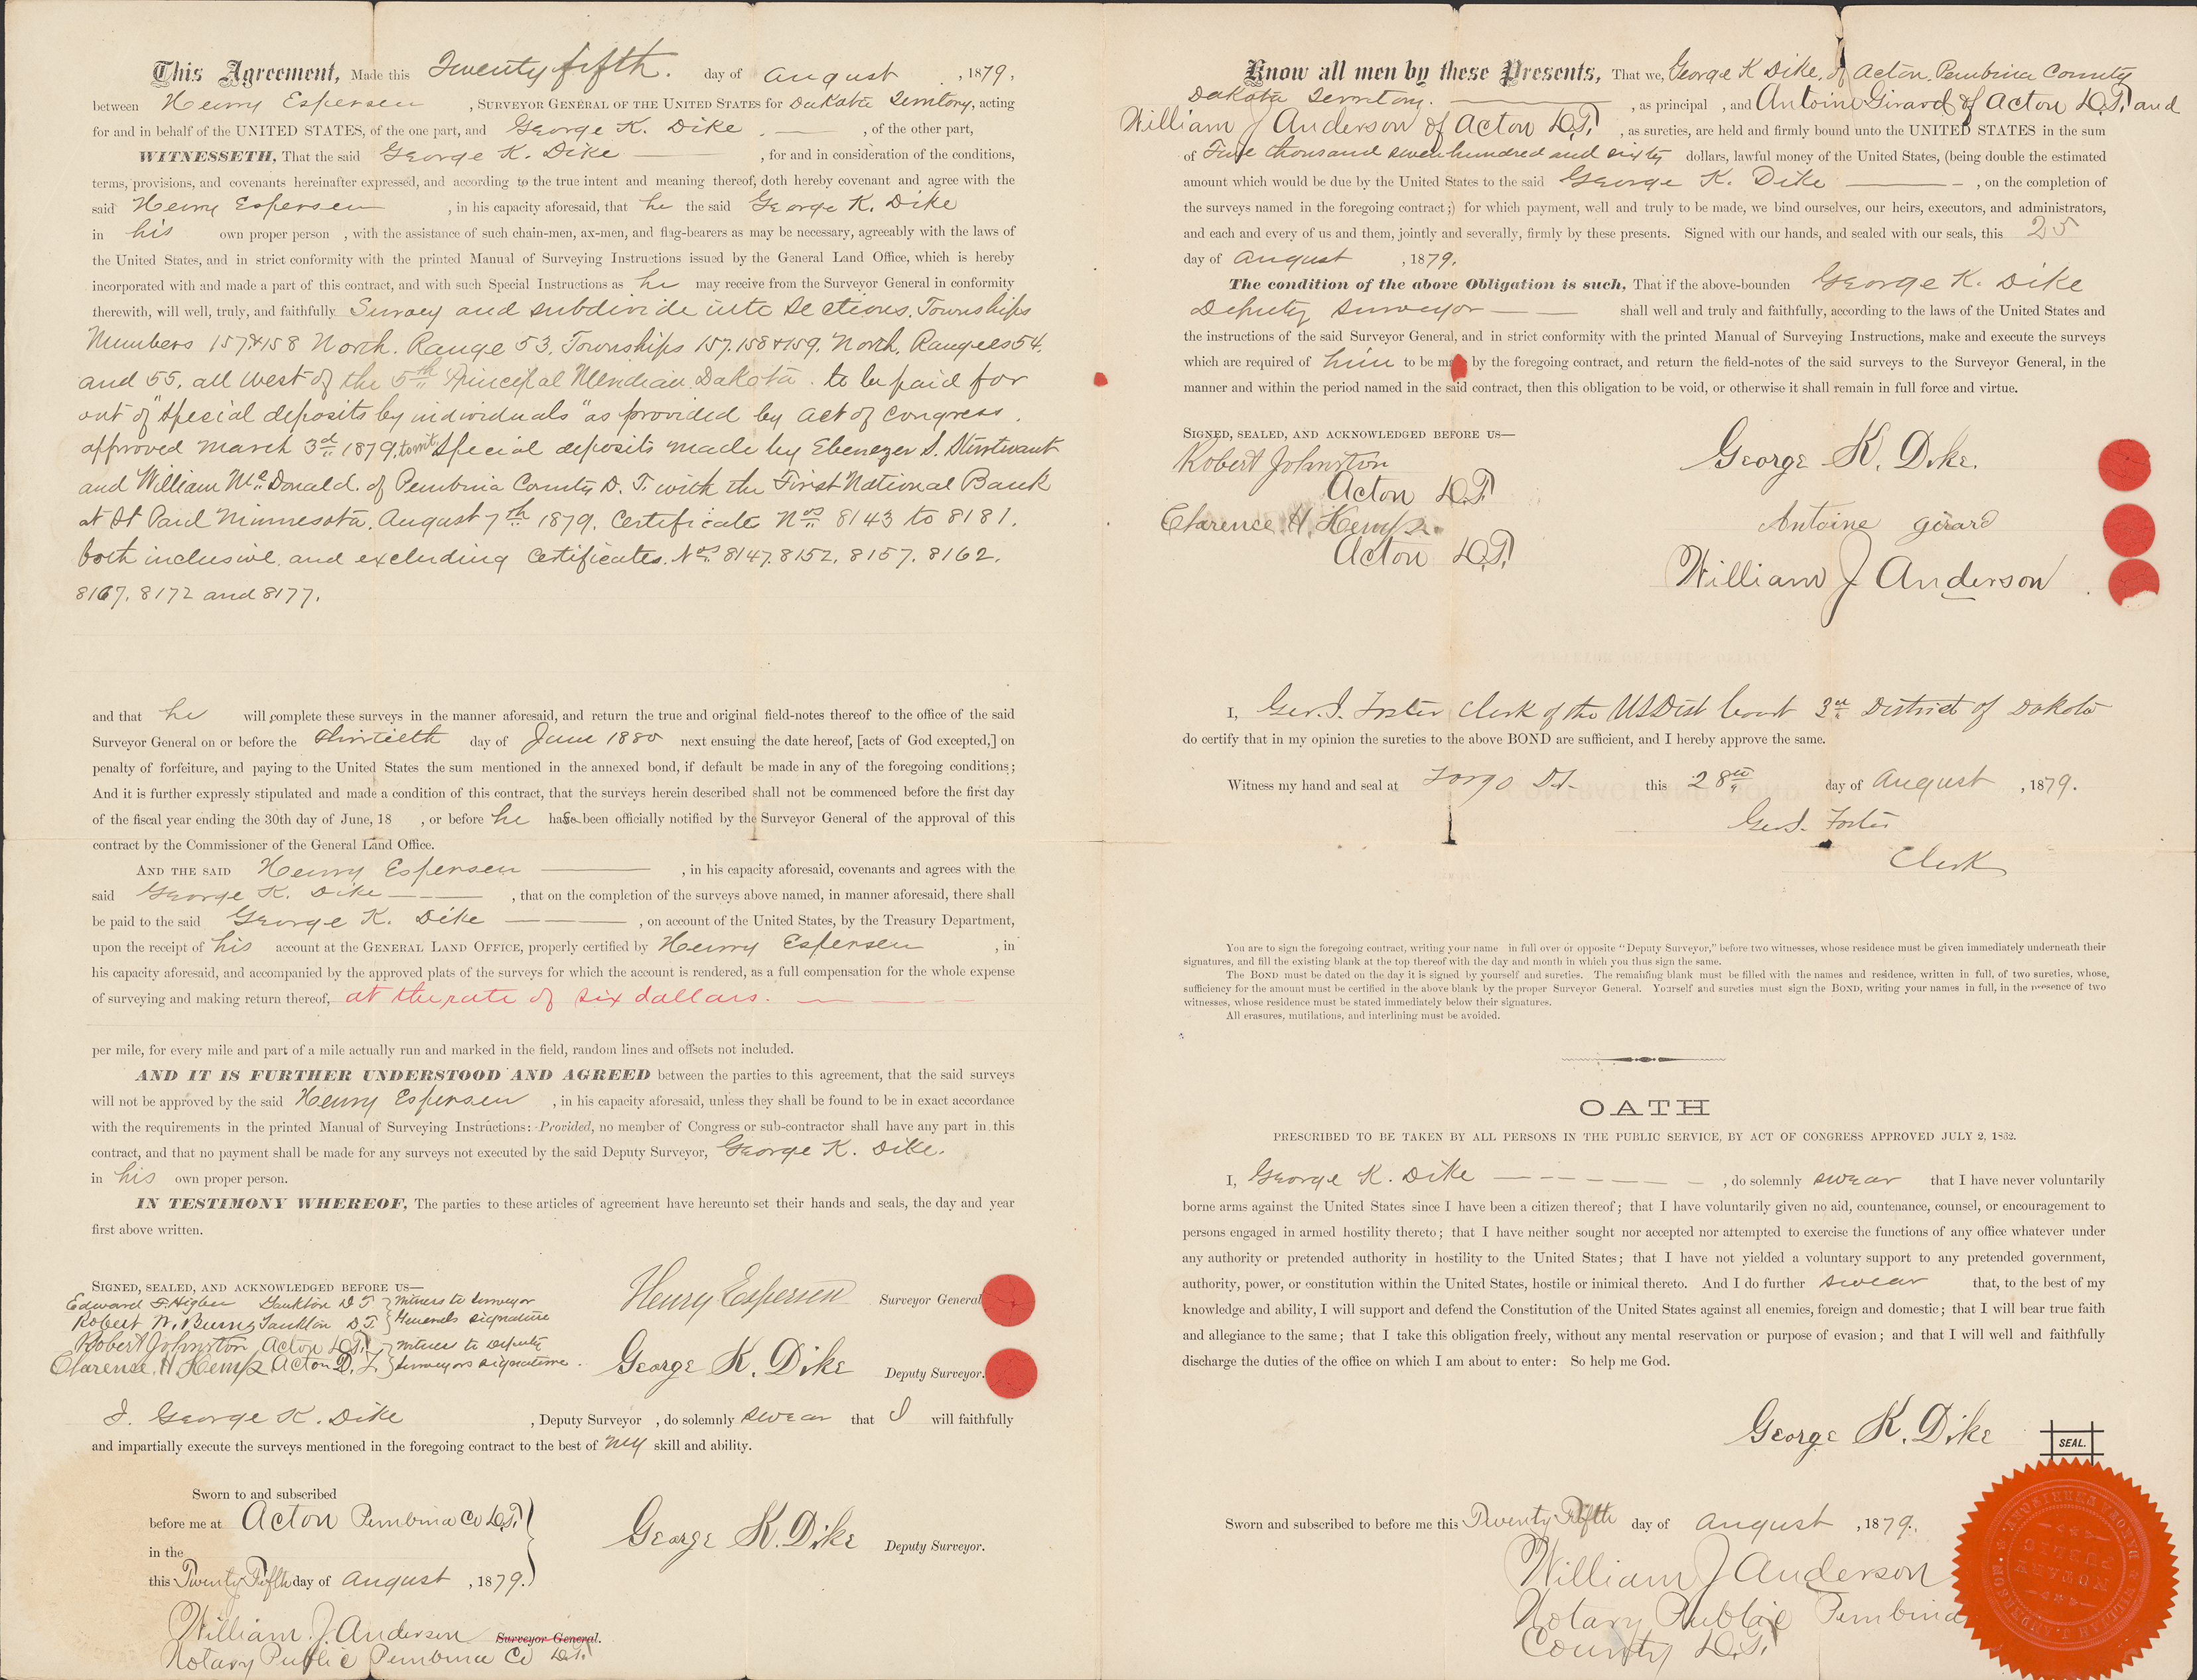 This Agreement, Made this Twenty fifth. day of August , 1879,
between Henry Espersen , SURVEYOR GENERAL OF THE UNITED STATES for Dakota Territory, acting
for and in behalf of the UNITED STATES, of the one part, and George K. Dike. — , of the other part,
WITNESSETH, That the said George K. Dike — , for and in consideration of the conditions,
terms, provisions, and covenants hereinafter expressed, and according to the true intent and meaning thereof, doth hereby covenant and agree with the
said Henry Espersen , in his capacity aforesaid, that he the said George K. Dike
in his own proper person , with the assistance of such chain-men, ax-men, and flag-bearers as may be necessary, agreeably with the laws of
the United States, and in strict conformity with the printed Manual of Surveying Instructions issued by the General Land Office, which is hereby
incorporated with and made a part of this contract, and with such Special Instructions as he may receive from the Surveyor General in conformity
therewith, will well, truly, and faithfully Survey and subdivide into Sections, Townships
Numbers 157 & 158 North. Range 53. Townships 157. 158 & 159. North. Ranges 54.
and 55, all West of the 5th Principal Meridian Dakota. to be paid for
out of "Special deposits by individuals" as provided by act of Congress.
approved March 3d 1879, towit: Special deposits made by Ebenezer S. Sturtevant
and William McDonald. of Pembina County D. T. with the First National Bank
at St Paul Minnesota. August 7th 1879. Certificate Nos 8143 to 8181.
both inclusive, and excluding Certificates. Nos 8147. 8152. 8157. 8162.
8167. 8172 and 8177.
and that he will complete these surveys in the manner aforesaid, and return the true and original field-notes thereof to the office of the said
Surveyor General on or before the thirtieth day of June 1880 next ensuing the date hereof, [acts of God excepted,] on
penalty of forfeiture, and paying to the United States the sum mentioned in the annexed bond, if default be made in any of the foregoing conditions;
And it is further expressly stipulated and made a condition of this contract, that the surveys herein described shall not be commenced before the first day
of the fiscal year ending the 30th day of June, 18 , or before he has been officially notified by the Surveyor General of the approval of this
contract by the Commissioner of the General Land Office.
AND THE SAID Henry Espersen — , in his capacity aforesaid, covenants and agrees with the
said George K. Dike — , that on the completion of the surveys above named, in manner aforesaid, there shall
be paid to the said George K. Dike — , on account of the United States, by the Treasury Department,
upon the receipt of his account at the GENERAL LAND OFFICE, properly certified by Henry Espersen , in
his capacity aforesaid, and accompanied by the approved plats of the surveys for which the account is rendered, as a full compensation for the whole expense
of surveying and making return thereof, at the rate of six dollars. —
per mile, for every mile and part of a mile actually run and marked in the field, random lines and offsets not included.
AND IT IS FURTHER UNDERSTOOD AND AGREED between the parties to this agreement, that the said surveys
will not be approved by the said Henry Espersen , in his capacity aforesaid, unless they shall be found to be in exact accordance
with the requirements in the printed Manual of Surveying Instructions: Provided, no member of Congress or sub-contractor shall have any part in this
contract, and that no payment shall be made for any surveys not executed by the said Deputy Surveyor, George K. Dike.
in his own proper person.
IN TESTIMONY WHEREOF, The parties to these articles of agreement have hereunto set their hands and seals, the day and year
first above written.
SIGNED, SEALED, AND ACKNOWLEDGED BEFORE US—
Edward F. Higbee Yankton D T } Witness to Surveyor
Robert W. Burns Yankton D.T. } Generals signature
Henry Espersen Surveyor General
Robert Johnston Acton D.T. } Witness to Deputy
Clarence. H. Kemp Acton D. T. } Surveyors signature.
George K. Dike Deputy Surveyor.
I. George K. Dike , Deputy Surveyor , do solemnly swear that I will faithfully
and impartially execute the surveys mentioned in the foregoing contract to the best of my skill and ability.
Sworn to and subscribed
before me at Acton Pembina Co D.T.
in the
this Twenty Fifth day of August , 1879.
George K. Dike Deputy Surveyor.
William. J. Anderson Surveyor General.
Notary Public Pembina Co D.T.
Know all men by these Presents, That we, George K Dike, of Acton Pembina County
Dakota Territory. — , as principal , and Antoine Girard of Acton D.T. and
William J Anderson of Acton D.T. , as sureties, are held and firmly bound unto the UNITED STATES in the sum
of Five thousand seven hundred and sixty dollars, lawful money of the United States, (being double the estimated
amount which would be due by the United States to the said George K. Dike — , on the completion of
the surveys named in the foregoing contract;) for which payment, well and truly to be made, we bind ourselves, our heirs, executors, and administrators,
and each and every of us and them, jointly and severally, firmly by these presents. Signed with our hands, and sealed with our seals, this 25
day of August , 1879.
The condition of the above Obligation is such, That if the above-bounden George K. Dike
Deputy Surveyor — shall well and truly and faithfully, according to the laws of the United States and
the instructions of the said Surveyor General, and in strict conformity with the printed Manual of Surveying Instructions, make and execute the surveys
which are required of him to be made by the foregoing contract, and return the field-notes of the said surveys to the Surveyor General, in the
manner and within the period named in the said contract, then this obligation to be void, or otherwise it shall remain in full force and virtue.
SIGNED, SEALED, AND ACKNOWLEDGED BEFORE US—
Robert Johnston
Acton D.T.
Clarence. H. Kemp.
Acton D.T.
George K. Dike.
Antoine girard
William J Anderson
I, Geo. I. Foster Clerk of the US Dist Court 3rd District of Dakota
do certify that in my opinion the sureties to the above BOND are sufficient, and I hereby approve the same.
Witness my hand and seal at Fargo D.T. this 28th day of August , 1879.
Geo. I. Foster
Clerk
You are to sign the foregoing contract, writing your name in full over or opposite "Deputy Surveyor," before two witnesses, whose residence must be given immediately underneath their
signatures, and fill the existing blank at the top thereof with the day and month in which you thus sign the same.
The BOND must be dated on the day it is signed by yourself and sureties. The remaining blank must be filled with the names and residence, written in full, of two sureties, whose,
sufficiency for the amount must be certified in the above blank by the proper Surveyor General. Yourself and sureties must sign the BOND, writing your names in full, in the presence of two
witnesses, whose residence must be stated immediately below their signatures.
All erasures, mutilations, and interlining must be avoided.
OATH
PRESCRIBED TO BE TAKEN BY ALL PERSONS IN THE PUBLIC SERVICE, BY ACT OF CONGRESS APPROVED JULY 2, 1862.
I, George K. Dike — , do solemnly swear that I have never voluntarily
borne arms against the United States since I have been a citizen thereof; that I have voluntarily given no aid, countenance, counsel, or encouragement to
persons engaged in armed hostility thereto; that I have neither sought nor accepted nor attempted to exercise the functions of any office whatever under
any authority or pretended authority in hostility to the United States; that I have not yielded a voluntary support to any pretended government,
authority, power, or constitution within the United States, hostile or inimical thereto. And I do further swear that, to the best of my
knowledge and ability, I will support and defend the Constitution of the United States against all enemies, foreign and domestic; that I will bear true faith
and allegiance to the same; that I take this obligation freely, without any mental reservation or purpose of evasion; and that I will well and faithfully
discharge the duties of the office on which I am about to enter: So help me God.
George K. Dike
SEAL.
Sworn and subscribed to before me this Twenty Fifth day of August , 1879.
William J Anderson
Notary Public Pembina
County D.T.
WILLIAM J. ANDERSON
NOTARY
PUBLIC